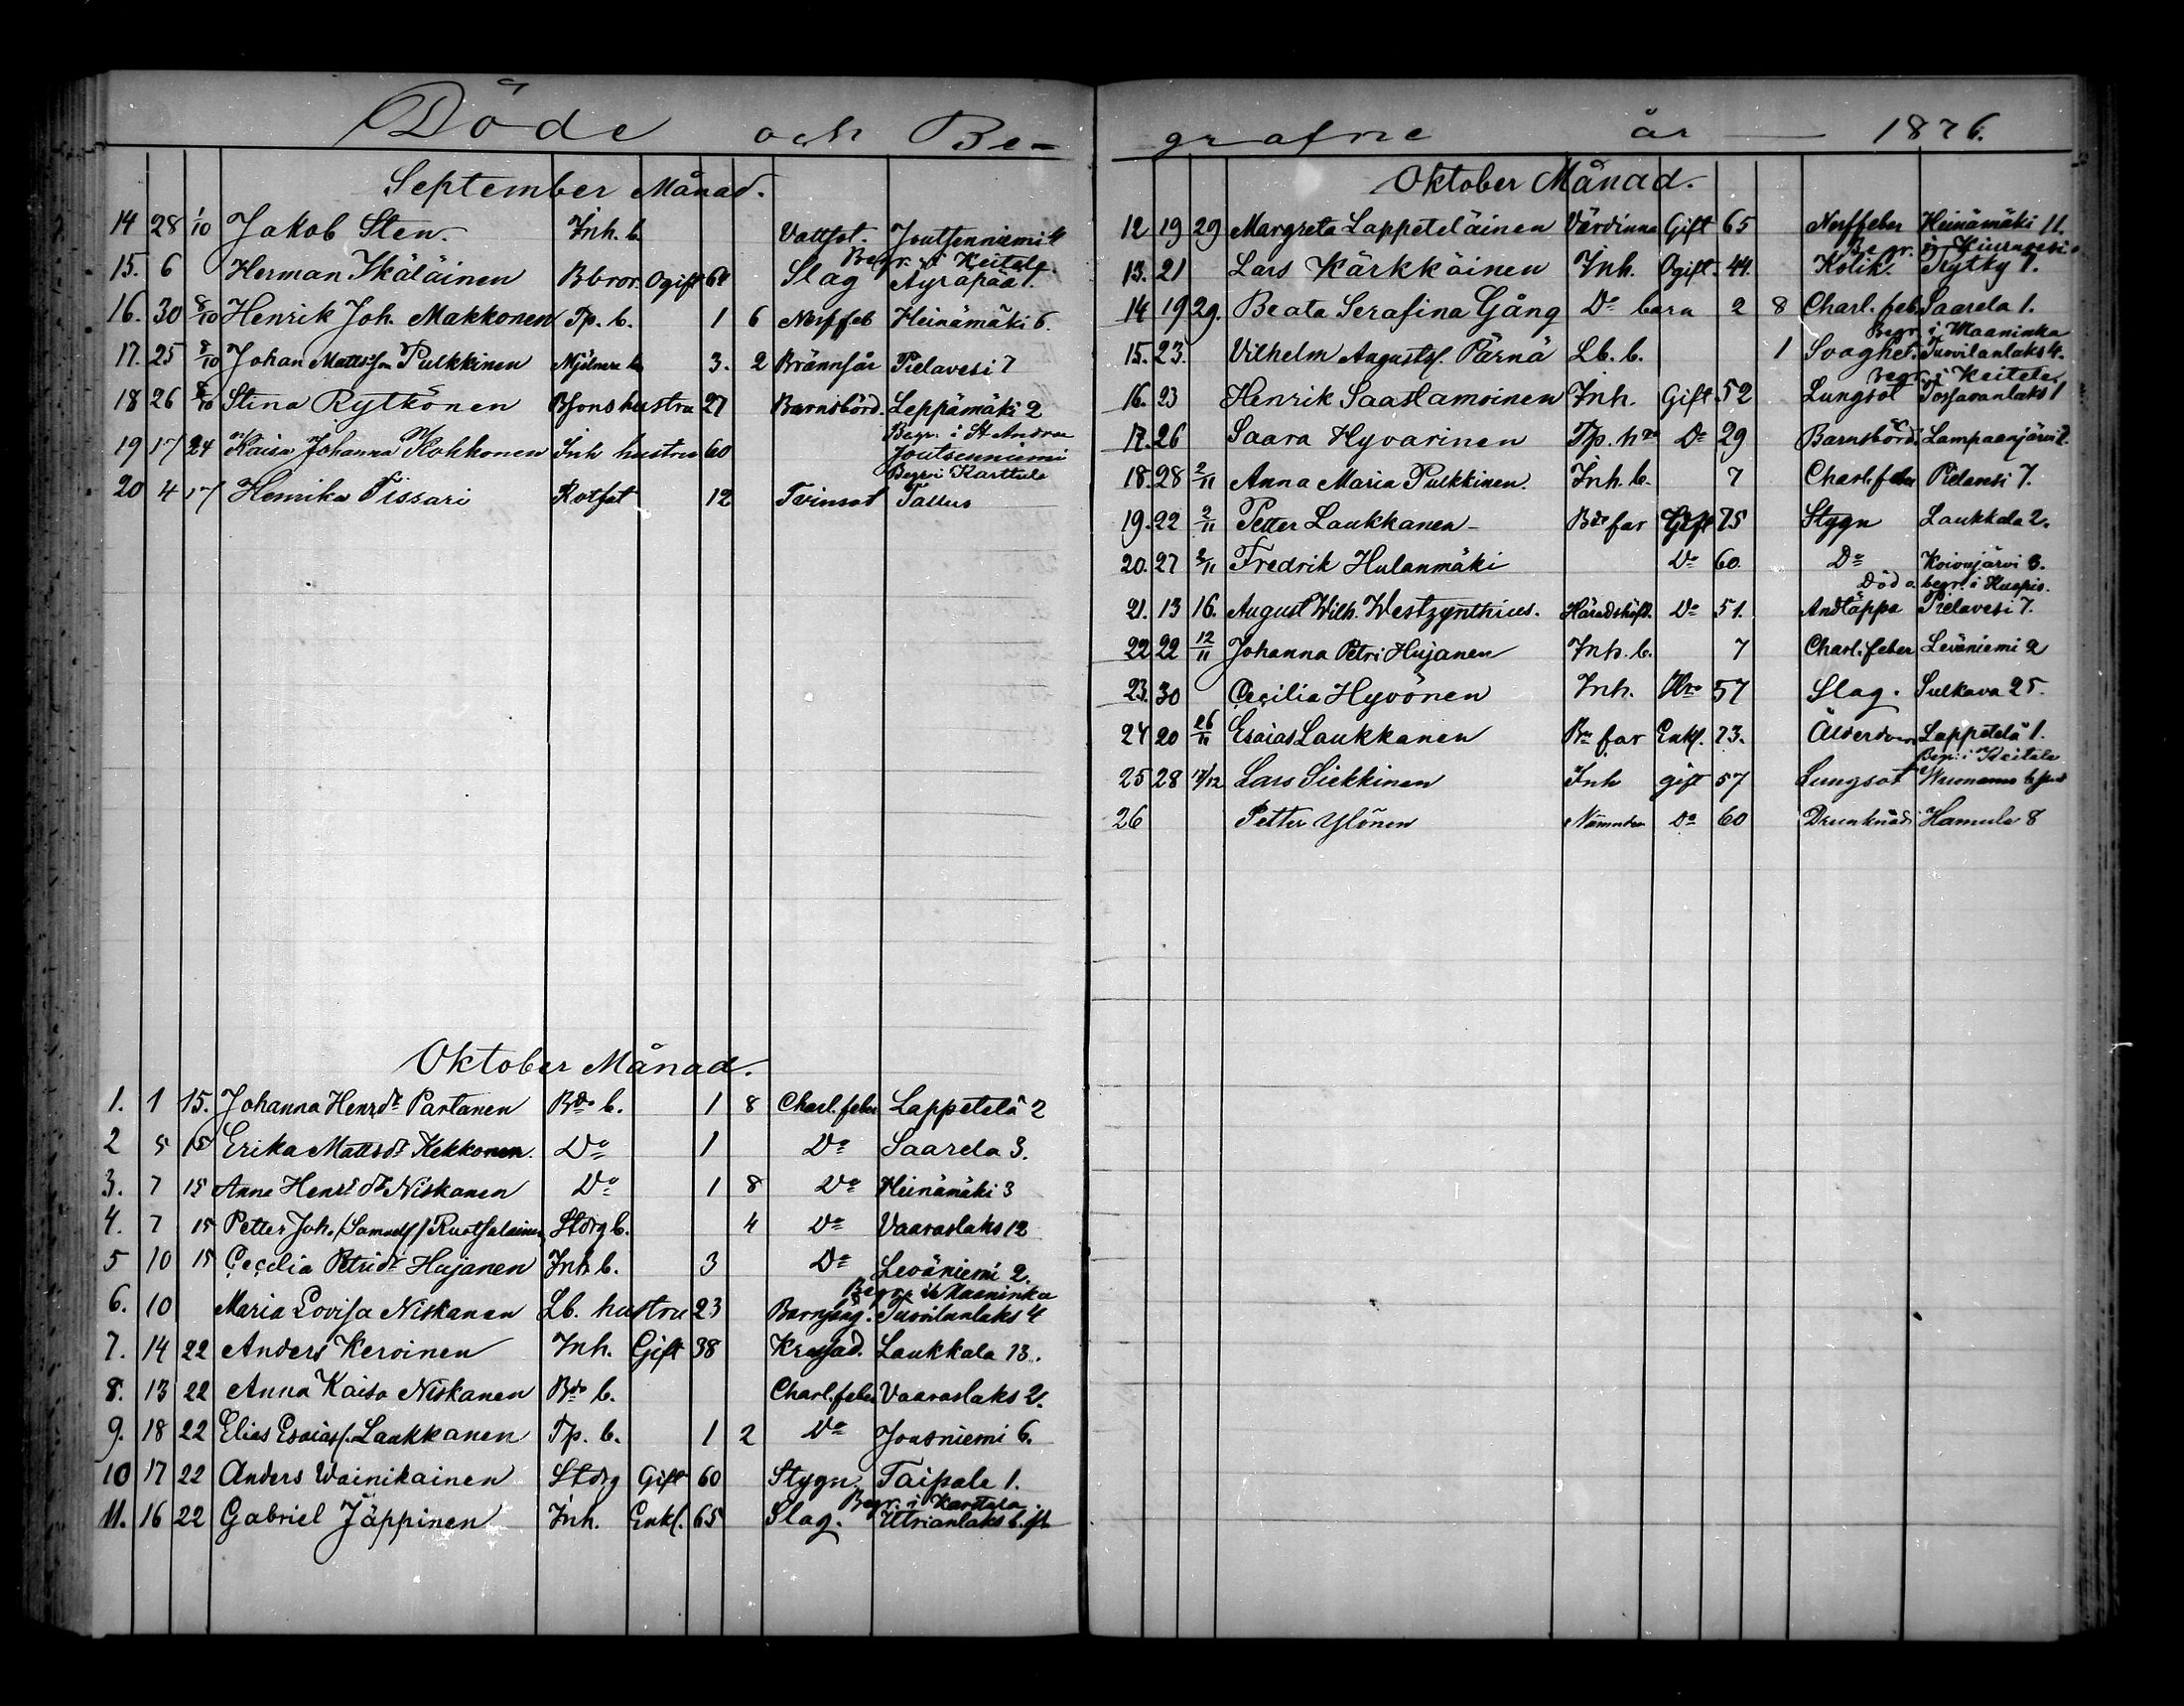 Döde och Be-
September Månad.
14 28 1/10 Jakob Sten. Inh. b. Vattsot. Joutsenniemi 4
Begr. i Keitele.
15. 6 Herman Ikäläinen Bbror. Ogift 61 Slag Äyräpää 1.
16. 30 8/10 Henrik Joh. Makkonen Tp. b. 1 6 Nerffeb Heinämäki 6.
17. 25 8/10 Johan Mattsson Pulkkinen Mjölnare b. 3. 2 Brännsår Pielavesi 7
18 26 8/10 Stina Rytkönen Bsons hustru 27 Barnsbörd. Leppämäki 2
Begr. i St Andree
19 17 24 Kaisa Johanna Kohkonen Inh hustru 60 Joutsenniemi
Begr. i Karttula
20 4 17 Henrika Tissari Rotfat 12 Tvinsot Tallus
Oktober Månad.
1. 1 15. Johanna Henrdr Partanen Bde b. 1 8 Charl. feber Lappetelä 2
2 5 15 Erika Mattsdr Kekkonen. Do 1 Do Saarela 3.
3. 7 15 Anna Henrsdr Niskanen Do 1 8 Do Heinämäki 3
4. 7 15 Petter Joh. /Samuels/ Ruotsalainen Stdrg b. 4 Do Vaaraslaks 12
5 10 15 Cecilia Petridr Hujanen Inh b. 3 Do Leväniemi 2.
Begr. i Maaninka
6. 10 Maria Lovisa Niskanen Lb. hustru 23 Barnsäng. Tuovilanlaks 4
7. 14 22 Anders Keroinen Inh. Gift 38 Laukkala 13.
8. 13 22 Anna Kaisa Niskanen Bde b. Charl. feber Vaaraslaks 2.
9. 18 22 Elias Esaiass. Laukkanen Tp. b. 1 2 Do Jousniemi 6.
10 17 22 Anders Wainikainen Stdrg Gift 60 Stygn Taipale 1.
Begr. i Karttula.
11. 16 22 Gabriel Jäppinen Inh. Enkl. 65 Slag. Utrianlaks
grafne år — 1876.
Oktober Månad.
12 19 29 Margreta Lappeteläinen Värdinna Gift 65 Nerffeber Heinämäki 11.
Begr. i Kiuruvesi.
13. 21 Lars Kärkkäinen Inh. Ogift. 44. Kolik. Rytky 7.
14 19 29. Beata Serafina Gång Do barn 2 8 Charl. feb. Saarela 1.
Begr. i Maaninka
15. 23. Vilhelm Augusts. Pärnä Lb. b. 1 Svaghet. Tuovilanlaks 4.
Begr. i Keitele
16. 23 Henrik Saastamoinen Inh. Gift. 52 Lungsot Tossavanlaks 1
17. 26 Saara Hyvarinen Tp. hru Do 29 Barnsbörd. Lampaanjärvi 2.
18. 28 2/11 Anna Maria Pulkkinen. Inh. b. 7 Charl. feber Pielavesi 7.
19. 22 2/11 Petter Laukkanen Bde far Gift 75 Stygn Laukkala 2.
20. 27 2/11 Fredrik Hulanmäki Do 60. Do Koivujärvi 3.
Död o. begr. i Kuopio.
21. 13 16. August Wilh. Westzynthius. Häradshöfd. Do 51. Andtäppa Pielavesi 7.
22 22 12/11 Johanna Petri Hujanen Inh. b. 7 Charl. feber Leväniemi 2
23. 30 Cecilia Hyvönen Inh. Hru 57 Slag. Sulkava 25.
24 20 26/11 Esaias Laukkanen Bde far Enkl. 73. Ålderdom Lappetelä 1.
Begr. i Keitele
25 28 17/12 Lars Siekkinen Inh gift 57 Lungsot
26 Petter Ylönen Nämndem Do 60 Drunknad Hamula 8